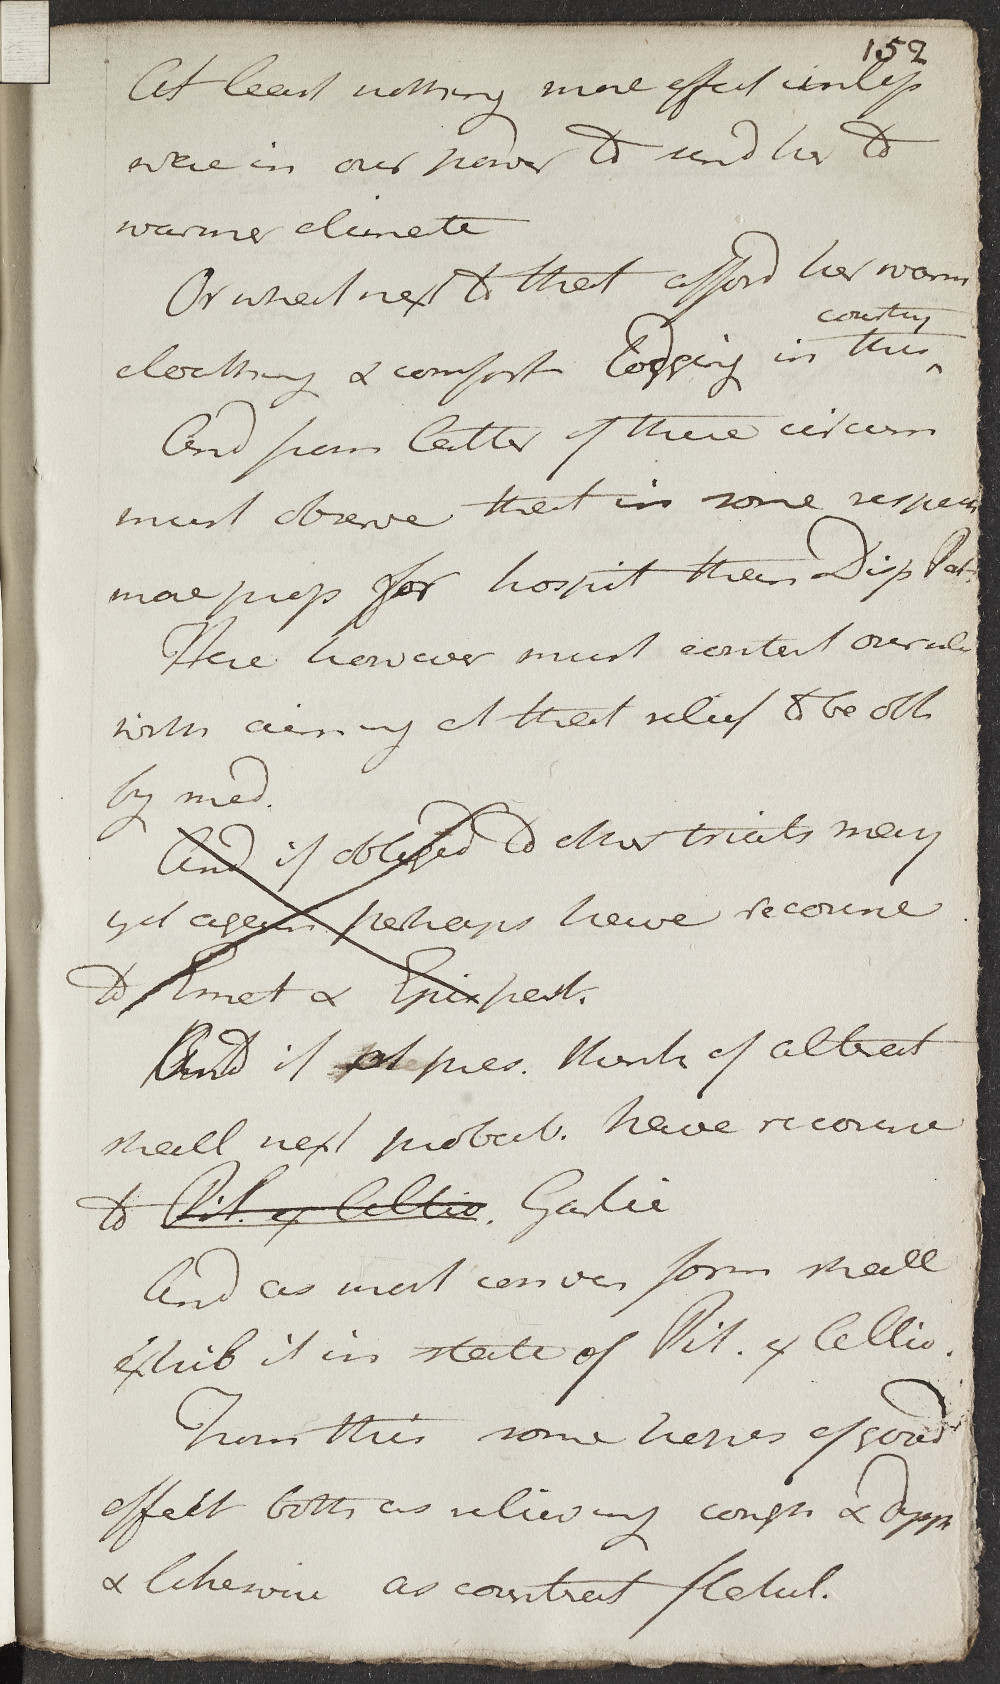 152
At least nothing more effect unless
were in our power to send her to
warmer climate
Or what next to that afford her warm
country
clothing & comfort lodging in this ^
And from latter of these circum
must observe that in some respects
more prop for hospit than Disp Pat.
Here however must content ourselv
with aiming at that relief to be obt
by med.
And if obliged to other trials may
yet again perhaps have recourse
to Emet & Epispast.
And if at pres. think of all treat
shall next probab. have recourse
to Pil. ex Allio. Garlic
And as most conven form shall
exhib it in state of Pil. ex Allio.
From this some hopes of good
effect both as relieving cough & dysp
& likewise as countreat flatul.